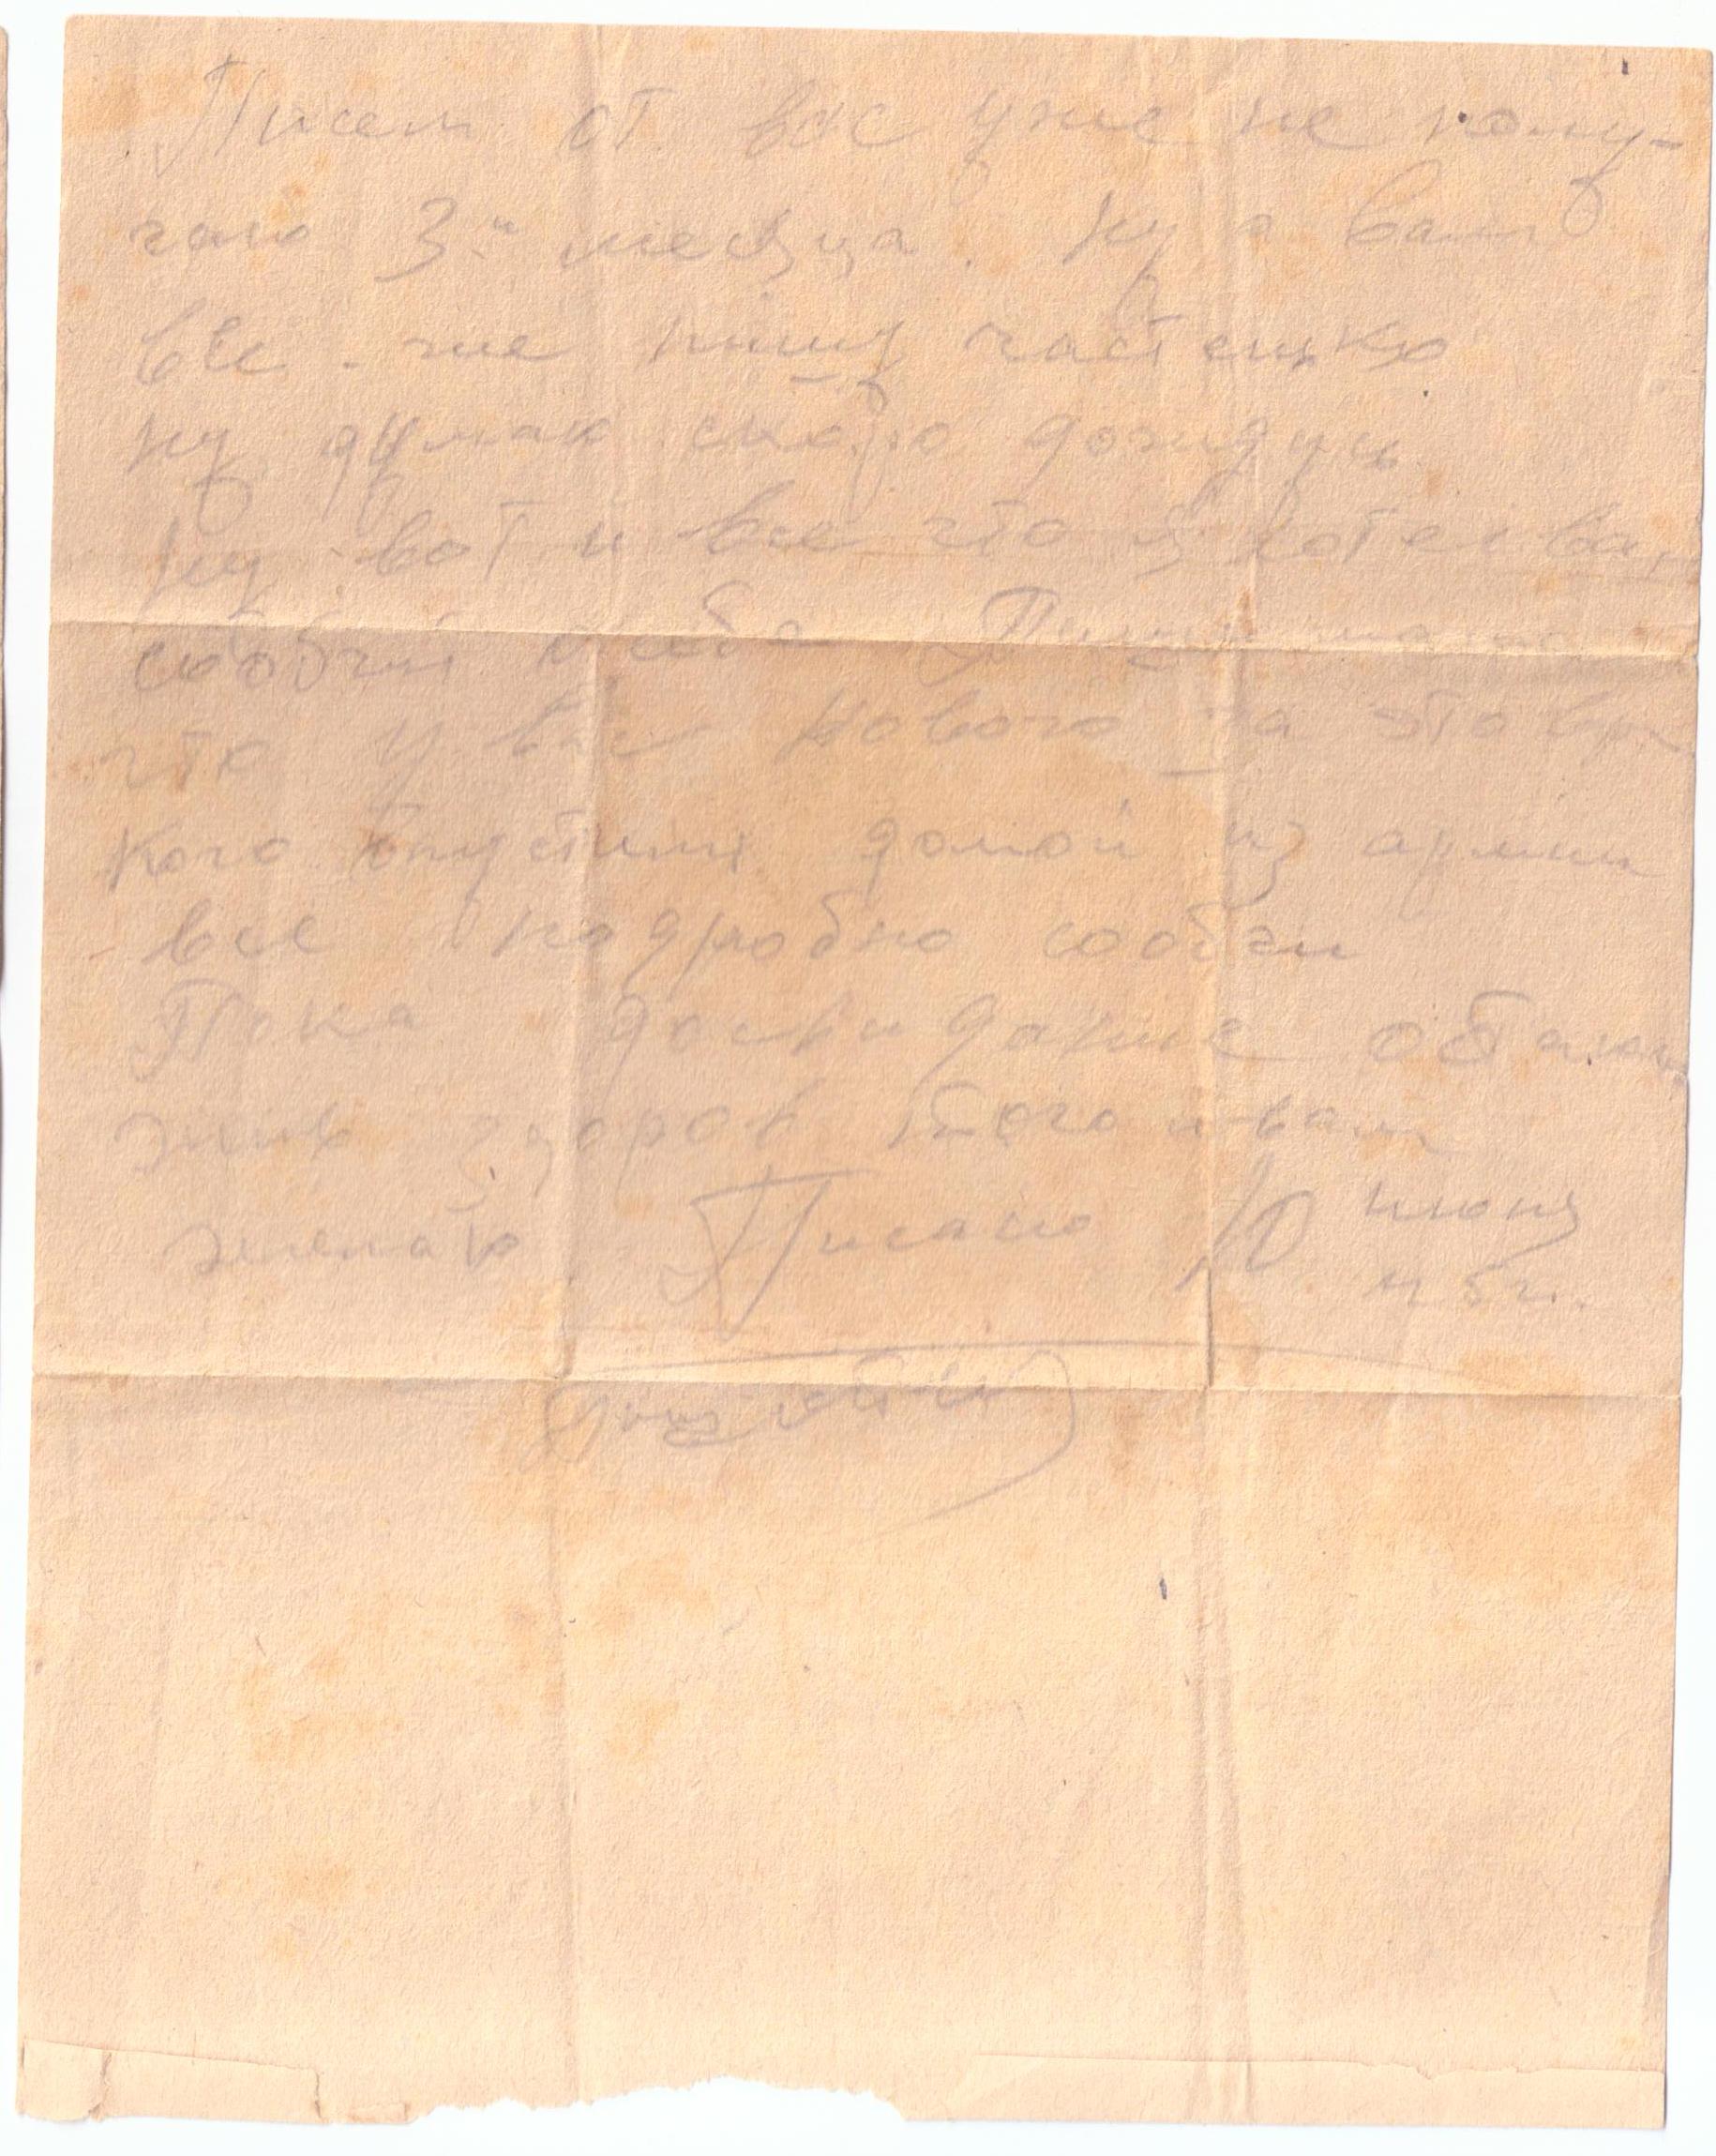 Писем от вас уже не полу-
чаю 3-и месяца. Ну а вам
все-же пишу частенько
ну думаю скоро дождусь.
ну вот и все что я хотел вам
сообчить о себе. Пиши мама
что у вас нового за это вре
кого отпустили домой из армии
все подробно сообчи
Пока досвидание остаюсь
жив здоров того и вам
желаю Писано 10 июня
45г.